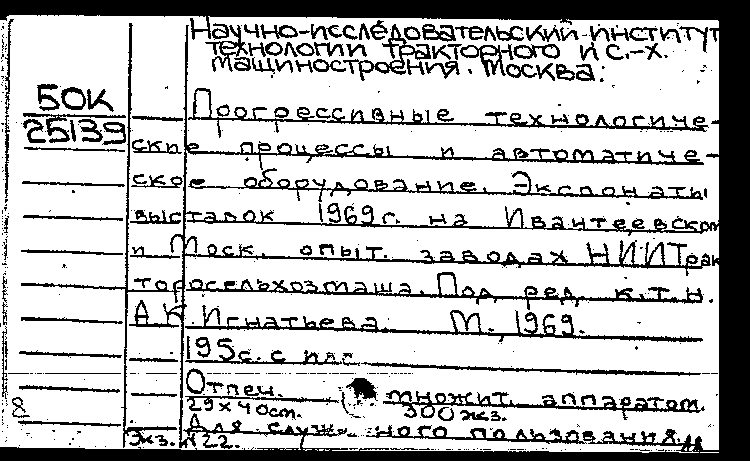 Научно-исследовательский институт
технологии тракторного и с.-х.
машиностроения. Москва.
БОК
25139
Прогрессивные технологиче-
ские процессы и автоматиче-
ское оборудование. Экспонаты
выставок 1969г. на Ивантеевском
и Моск. опыт. заводах НИИТрак
торосельхозмаша. Под ред. к.т.н.
А.К. Игнатьева. М., 1969.
195с. с илл.
Отпеч. множит. аппаратом.
29×40см. 300 экз.
Для служ ного пользования.
Экз. №22.
8